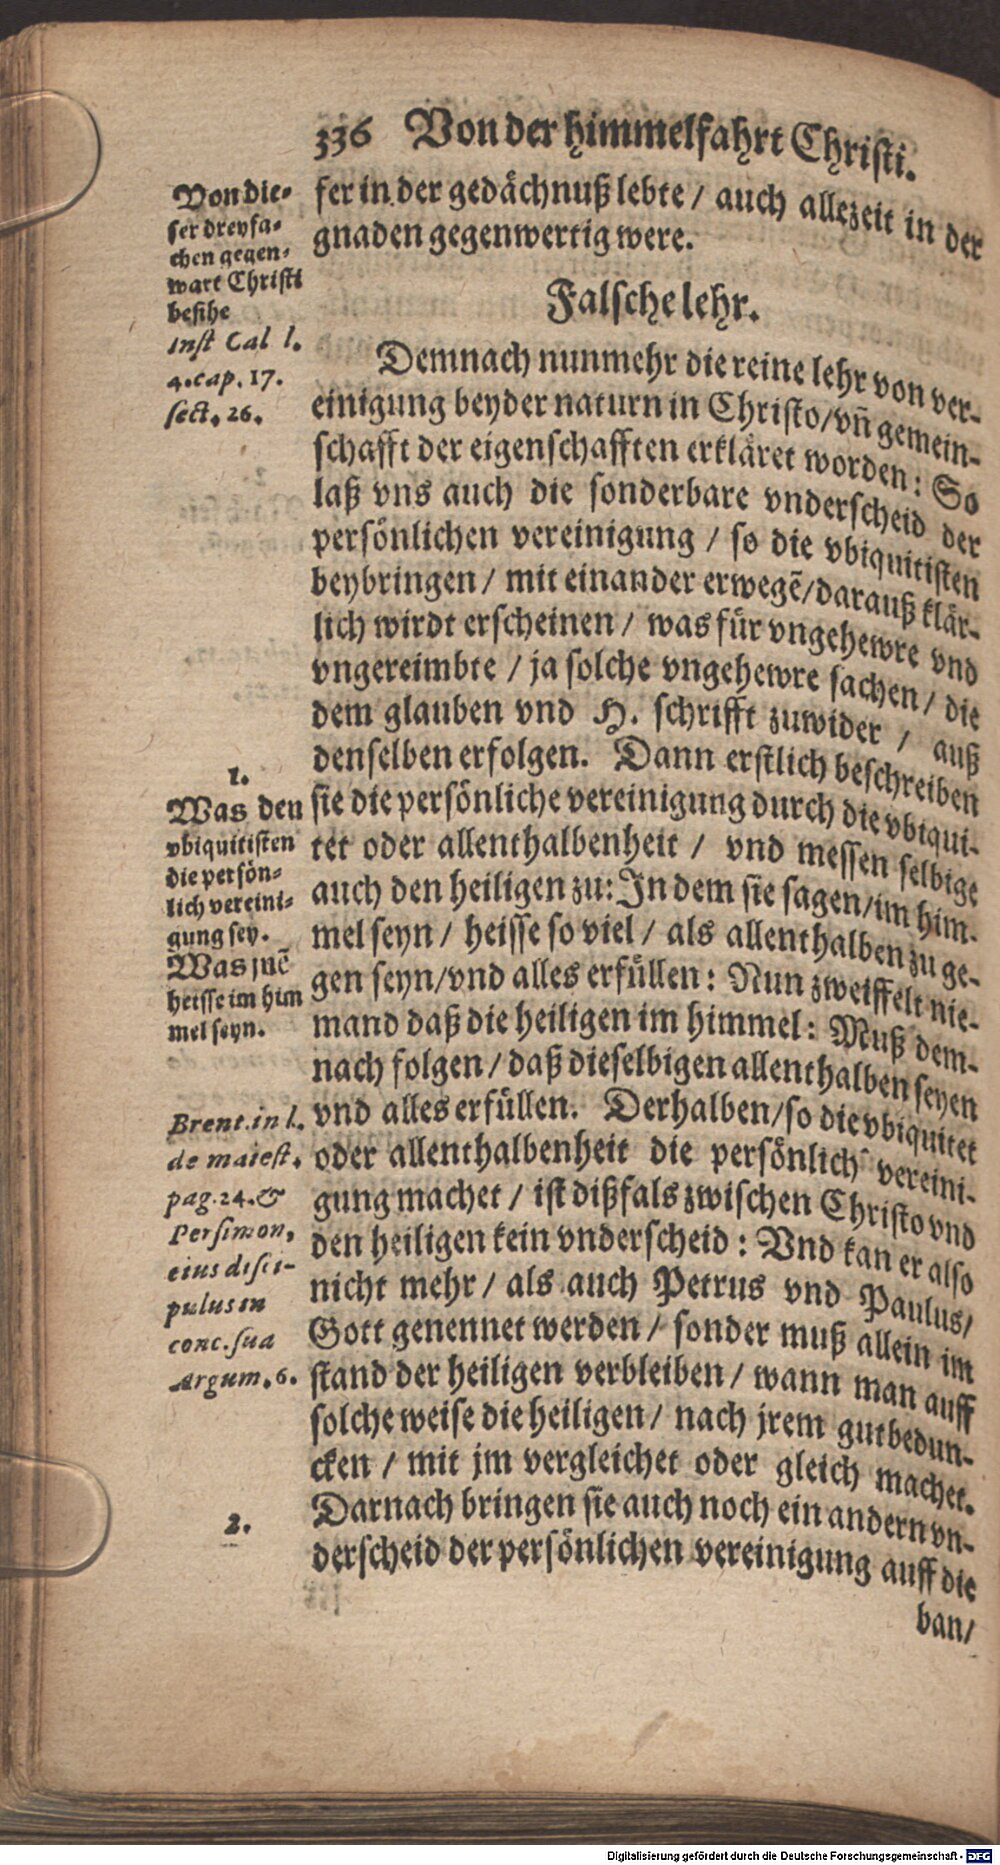 336 Von der himmelfahrt Christi.
fer in der gedächnuß lebte / auch allezeit in der
gnaden gegenwertig were.
Von die-
ser dreyfa-
chen gegen-
wart Christi
besihe
Inst Cal l.
4. cap. 17.
sect. 26.
Falsche lehr.
Demnach nunmehr die reine lehr von ver-
einigung beyder naturn in Christo/vñ gemein-
schafft der eigenschafften erkläret worden: So
laß vns auch die sonderbare vnderscheid der
persönlichen vereinigung / so die vbiquitisten
beybringen / mit einander erwegē/darauß klär-
lich wirdt erscheinen / was für vngehewre vnd
vngereimbte / ja solche vngehewre sachen / die
dem glauben vnd H. schrifft zuwider / auß
denselben erfolgen. Dann erstlich beschreiben
sie die persönliche vereinigung durch die vbiqui-
tet oder allenthalbenheit / vnd messen selbige
auch den heiligen zu: In dem sie sagen/im him-
mel seyn / heisse so viel / als allenthalben zu ge-
gen seyn/vnd alles erfüllen: Nun zweiffelt nie-
mand daß die heiligen im himmel: Muß dem-
nach folgen / daß dieselbigen allenthalben seyen
vnd alles erfüllen. Derhalben/so die vbiquitet
oder allenthalbenheit die persönlich vereini-
gung machet / ist dißfals zwischen Christo vnd
den heiligen kein vnderscheid: Vnd kan er also
nicht mehr / als auch Petrus vnd Paulus/
Gott genennet werden / sonder muß allein im
stand der heiligen verbleiben / wann man auff
solche weise die heiligen / nach jrem gutbedun-
cken / mit jm vergleichet oder gleich machet.
Darnach bringen sie auch noch ein andern vn-
derscheid der persönlichen vereinigung auff die
ban/
1.
Was den
vbiquitisten
die persön-
lich vereini-
gung sey.
Was jnē
heisse im him
mel seyn.
Brent. in l.
de maiest.
pag. 24. &
Persimon,
eius disci-
pulus in
conc. sua
Argum. 6.
2.
Digitalisierung gefördert durch die Deutsche Forschungsgemeinschaft - DFG